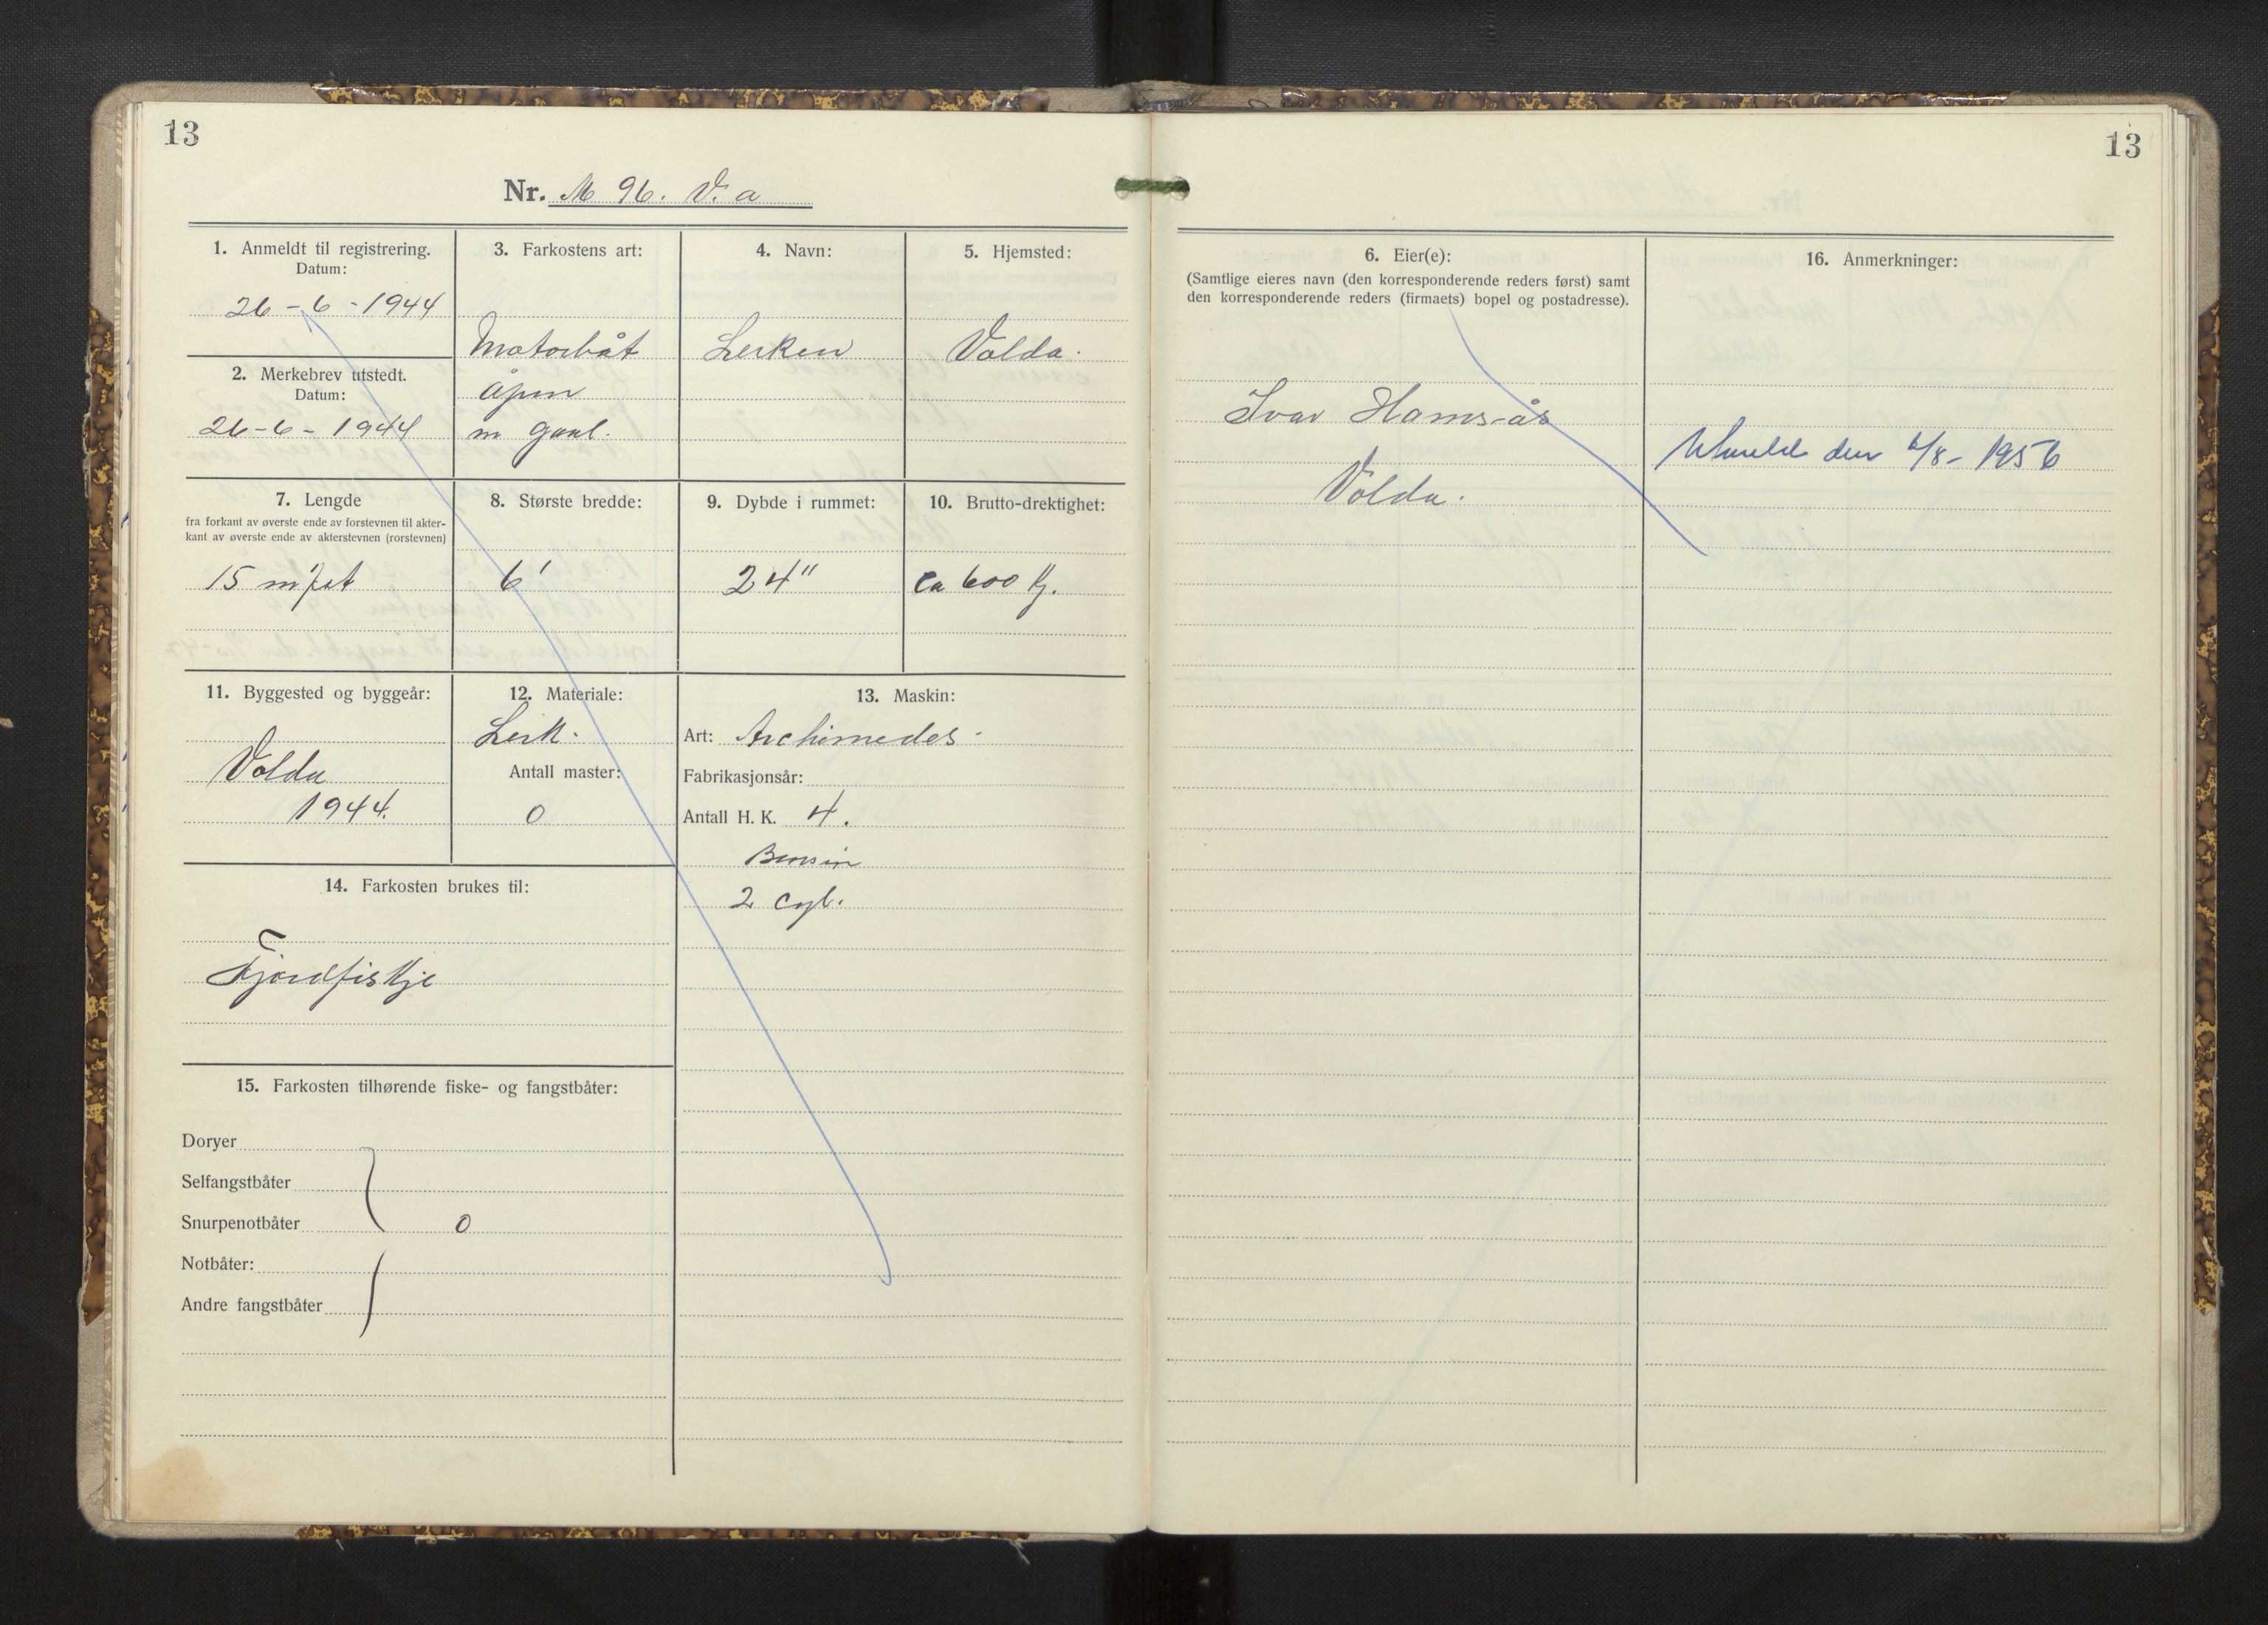 13
Nr. M 96. V. a
1. Anmeldt til registrering.
Datum:
26-6-1944
2. Merkebrev utstedt.
Datum:
26-6-1944
3. Farkostens art:
Motorbåt
åpen
m
4. Navn:
Lerken
5. Hjemsted:
Volda.
7. Lengde
fra forkant av øverste ende av forstevnen til akter-
kant av øverste ende av akterstevnen (rorstevnen)
15
8. Største bredde:
6'
9. Dybde i rummet:
24"
10. Brutto-drektighet:
ca 600 Kg.
11. Byggested og byggeår:
Volda
1944.
12. Materiale:
Lerk.
Antall master:
0
13. Maskin:
Art: Archimedes
Fabrikasjonsår:
Antall H. K. 4.
Bensin
2 cyl.
14. Farkosten brukes til:
Fjordfiskje
15. Farkosten tilhørende fiske- og fangstbåter:
Doryer
Selfangstbåter
Snurpenotbåter 0
Notbåter:
Andre fangstbåter
13
6. Eier(e):
(Samtlige eieres navn (den korresponderende reders først) samt
den korresponderende reders (firmaets) bopel og postadresse).
Ivar Hamsås
Volda.
16. Anmerkninger:
Utmeldt den 6/8-1956